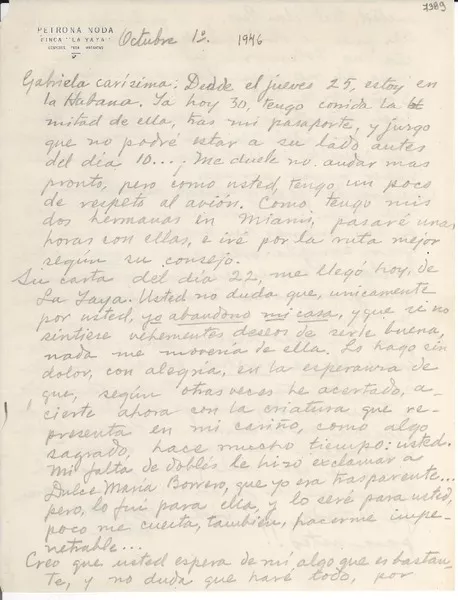 7389
PETRONA NODA
FINCA "LA YAYA"
Octubre 1º 1946
Gabriela carísima: Desde el jueves 25, estoy en
la Habana. Ya hoy 30, tengo corrida la
mitad de ella, tras mi pasaporte, y juzgo
que no podré estar a su lado antes
del día 10...; Me duele no andar mas
pronto, pero como usted, tengo un poco
de respeto al avión. Como tengo mis
dos hermanas en Miami, pasaré unas
horas con ellas, e iré por la ruta mejor
según su consejo.
Su carta del día 22, me llegó hoy, de
La Yaya. Usted no duda que, unicamente
por usted, yo abandono mi casa, y que si no
sintiese vehementes deseos de serle buena,
nada me movería de ella. Lo hago sin
dolor, con alegría, en la esperanza de
que, según otras veces he acertado, a-
cierte ahora con la criatura que re-
presenta en mi cariño, como algo
sagrado, hace mucho tiempo: usted.
Mi falta de doblés le hizo exclamar a
Dulce María Borrero, que yo era trasparente...
pero, lo fuí para ella, y lo seré para usted,
poco me cuesta, también, hacerme impe-
netrable...
Creo que usted espera de mí algo que es bastan-
te, y no duda que haré todo, por